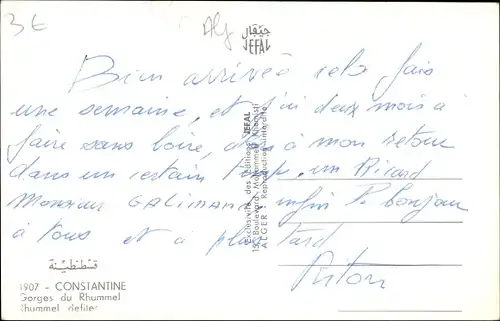 3€
Alg
جيفال
JEFAL
Bien arrivée cela fais
une semaine, et j'ai deux mois à
faire sans boire, à mon retour
dans un certain un Ricard
Monsieur GALIMAND enfin P. Bonjour
à tous et à plus tard
Exclusivité des Editions JEFAL
152 Boulevard Mohammed
ALGER - Reproduction interdite
قسنطينة
1907 - CONSTANTINE
Gorges du Rhummel
Rhummel defiles